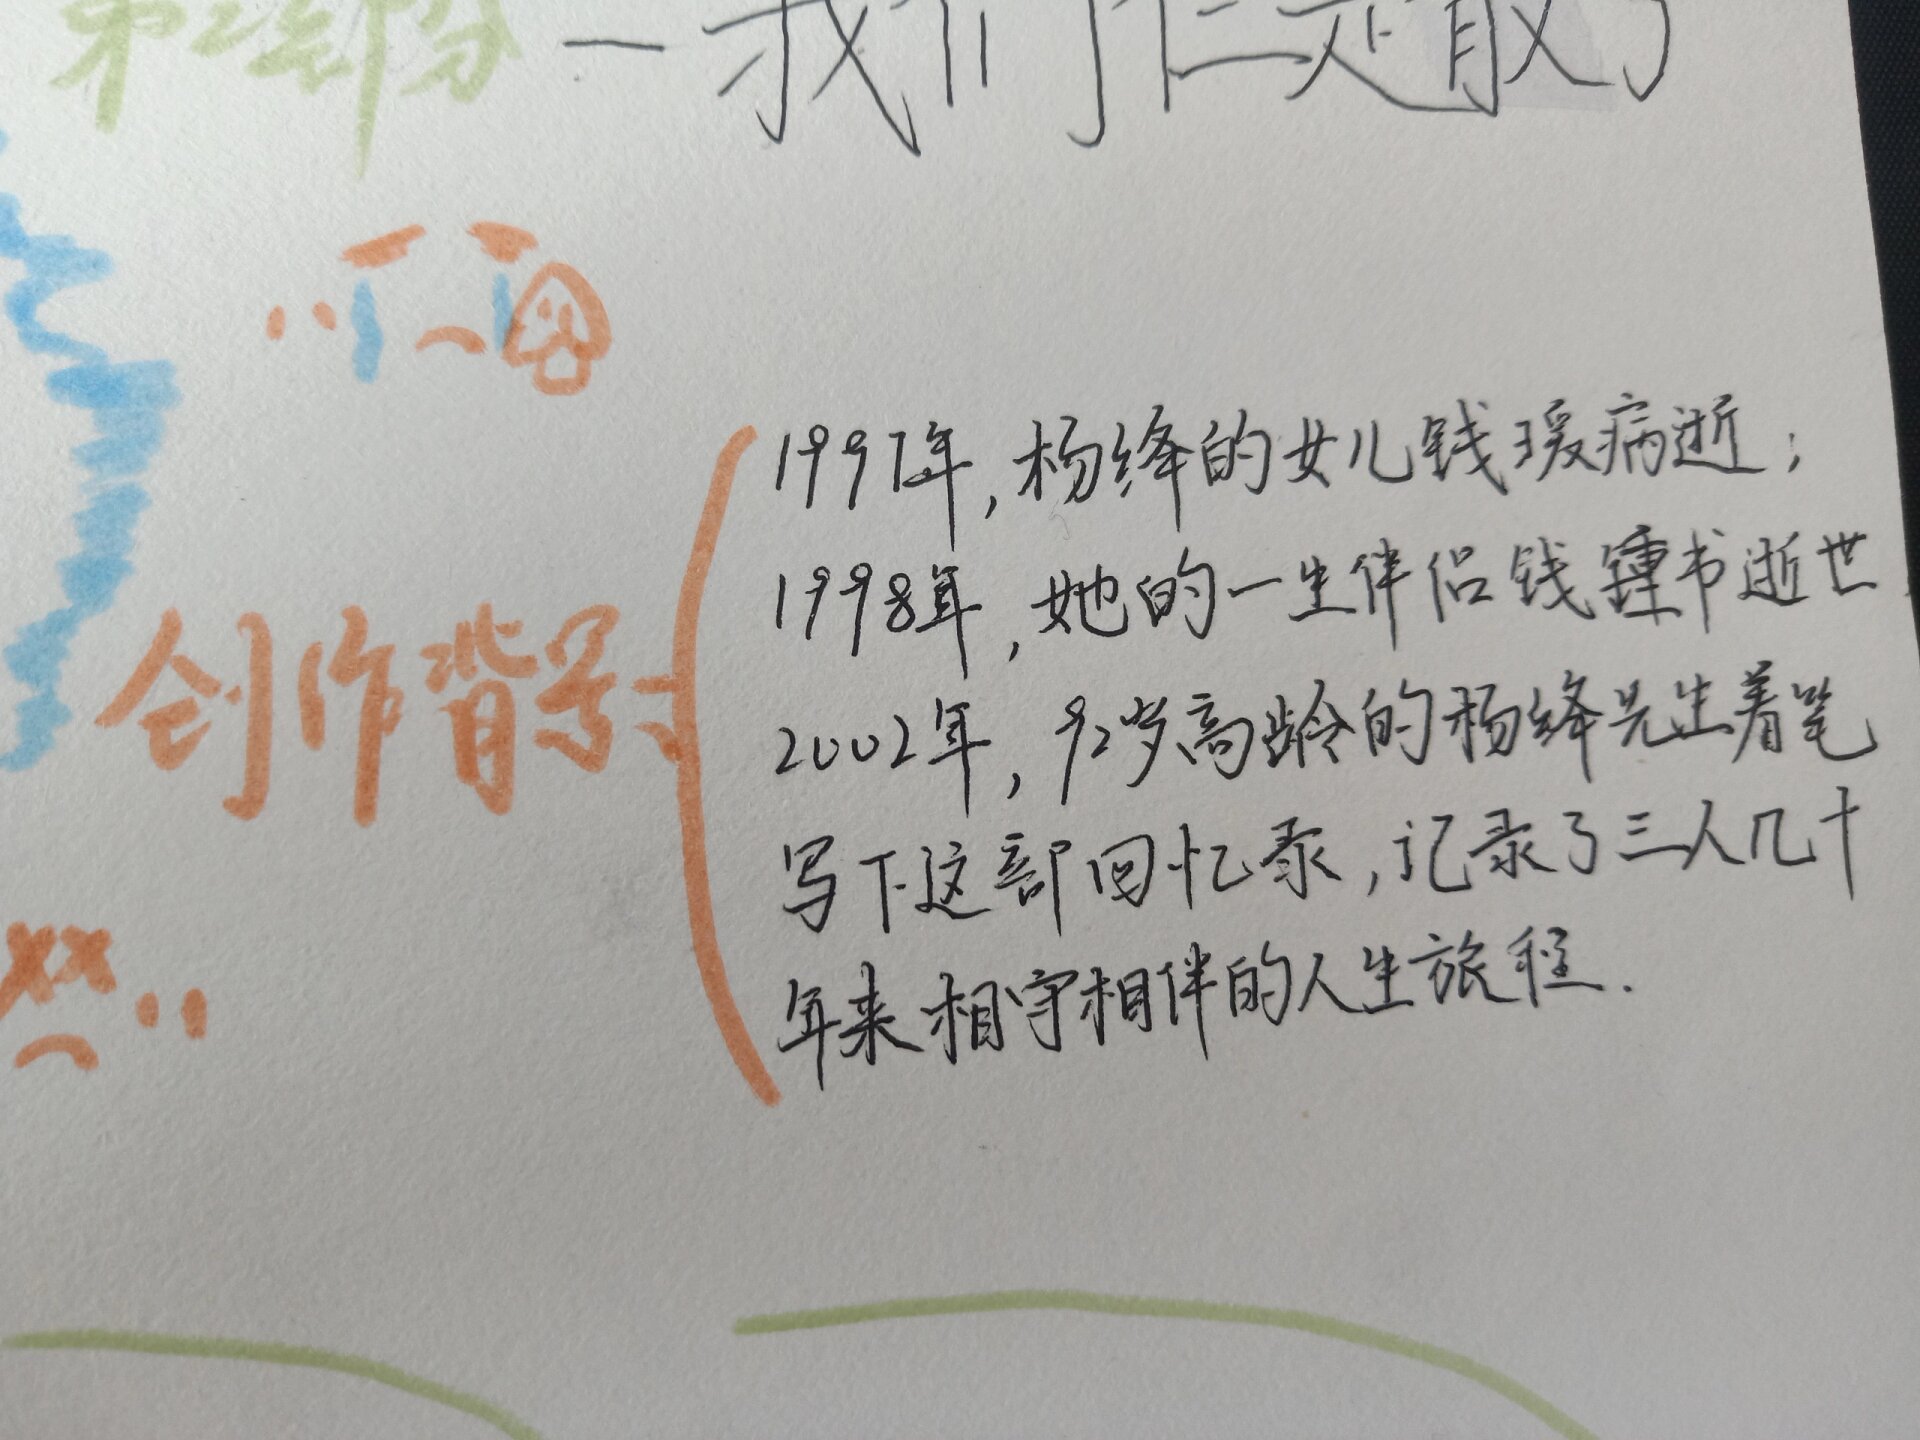 第二部分 — 我们仨走散了
创作背景:
1997年,杨绛的女儿钱瑗病逝;
1998年,她的一生伴侣钱锺书逝世
2002年,92岁高龄的杨绛先生着笔
写下这部回忆录,记录了三人几十
年来相守相伴的人生旅程.